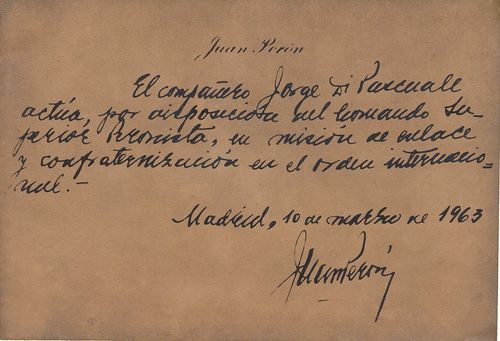 Juan Perón
El compañero Jorge Di Pascuale
actúa, por disposición del Comando Su-
perior Peronista, en misión de enlace
y confraternización en el orden internacio-
nal.-
Madrid, 10 de marzo de 1963
Juan Perón